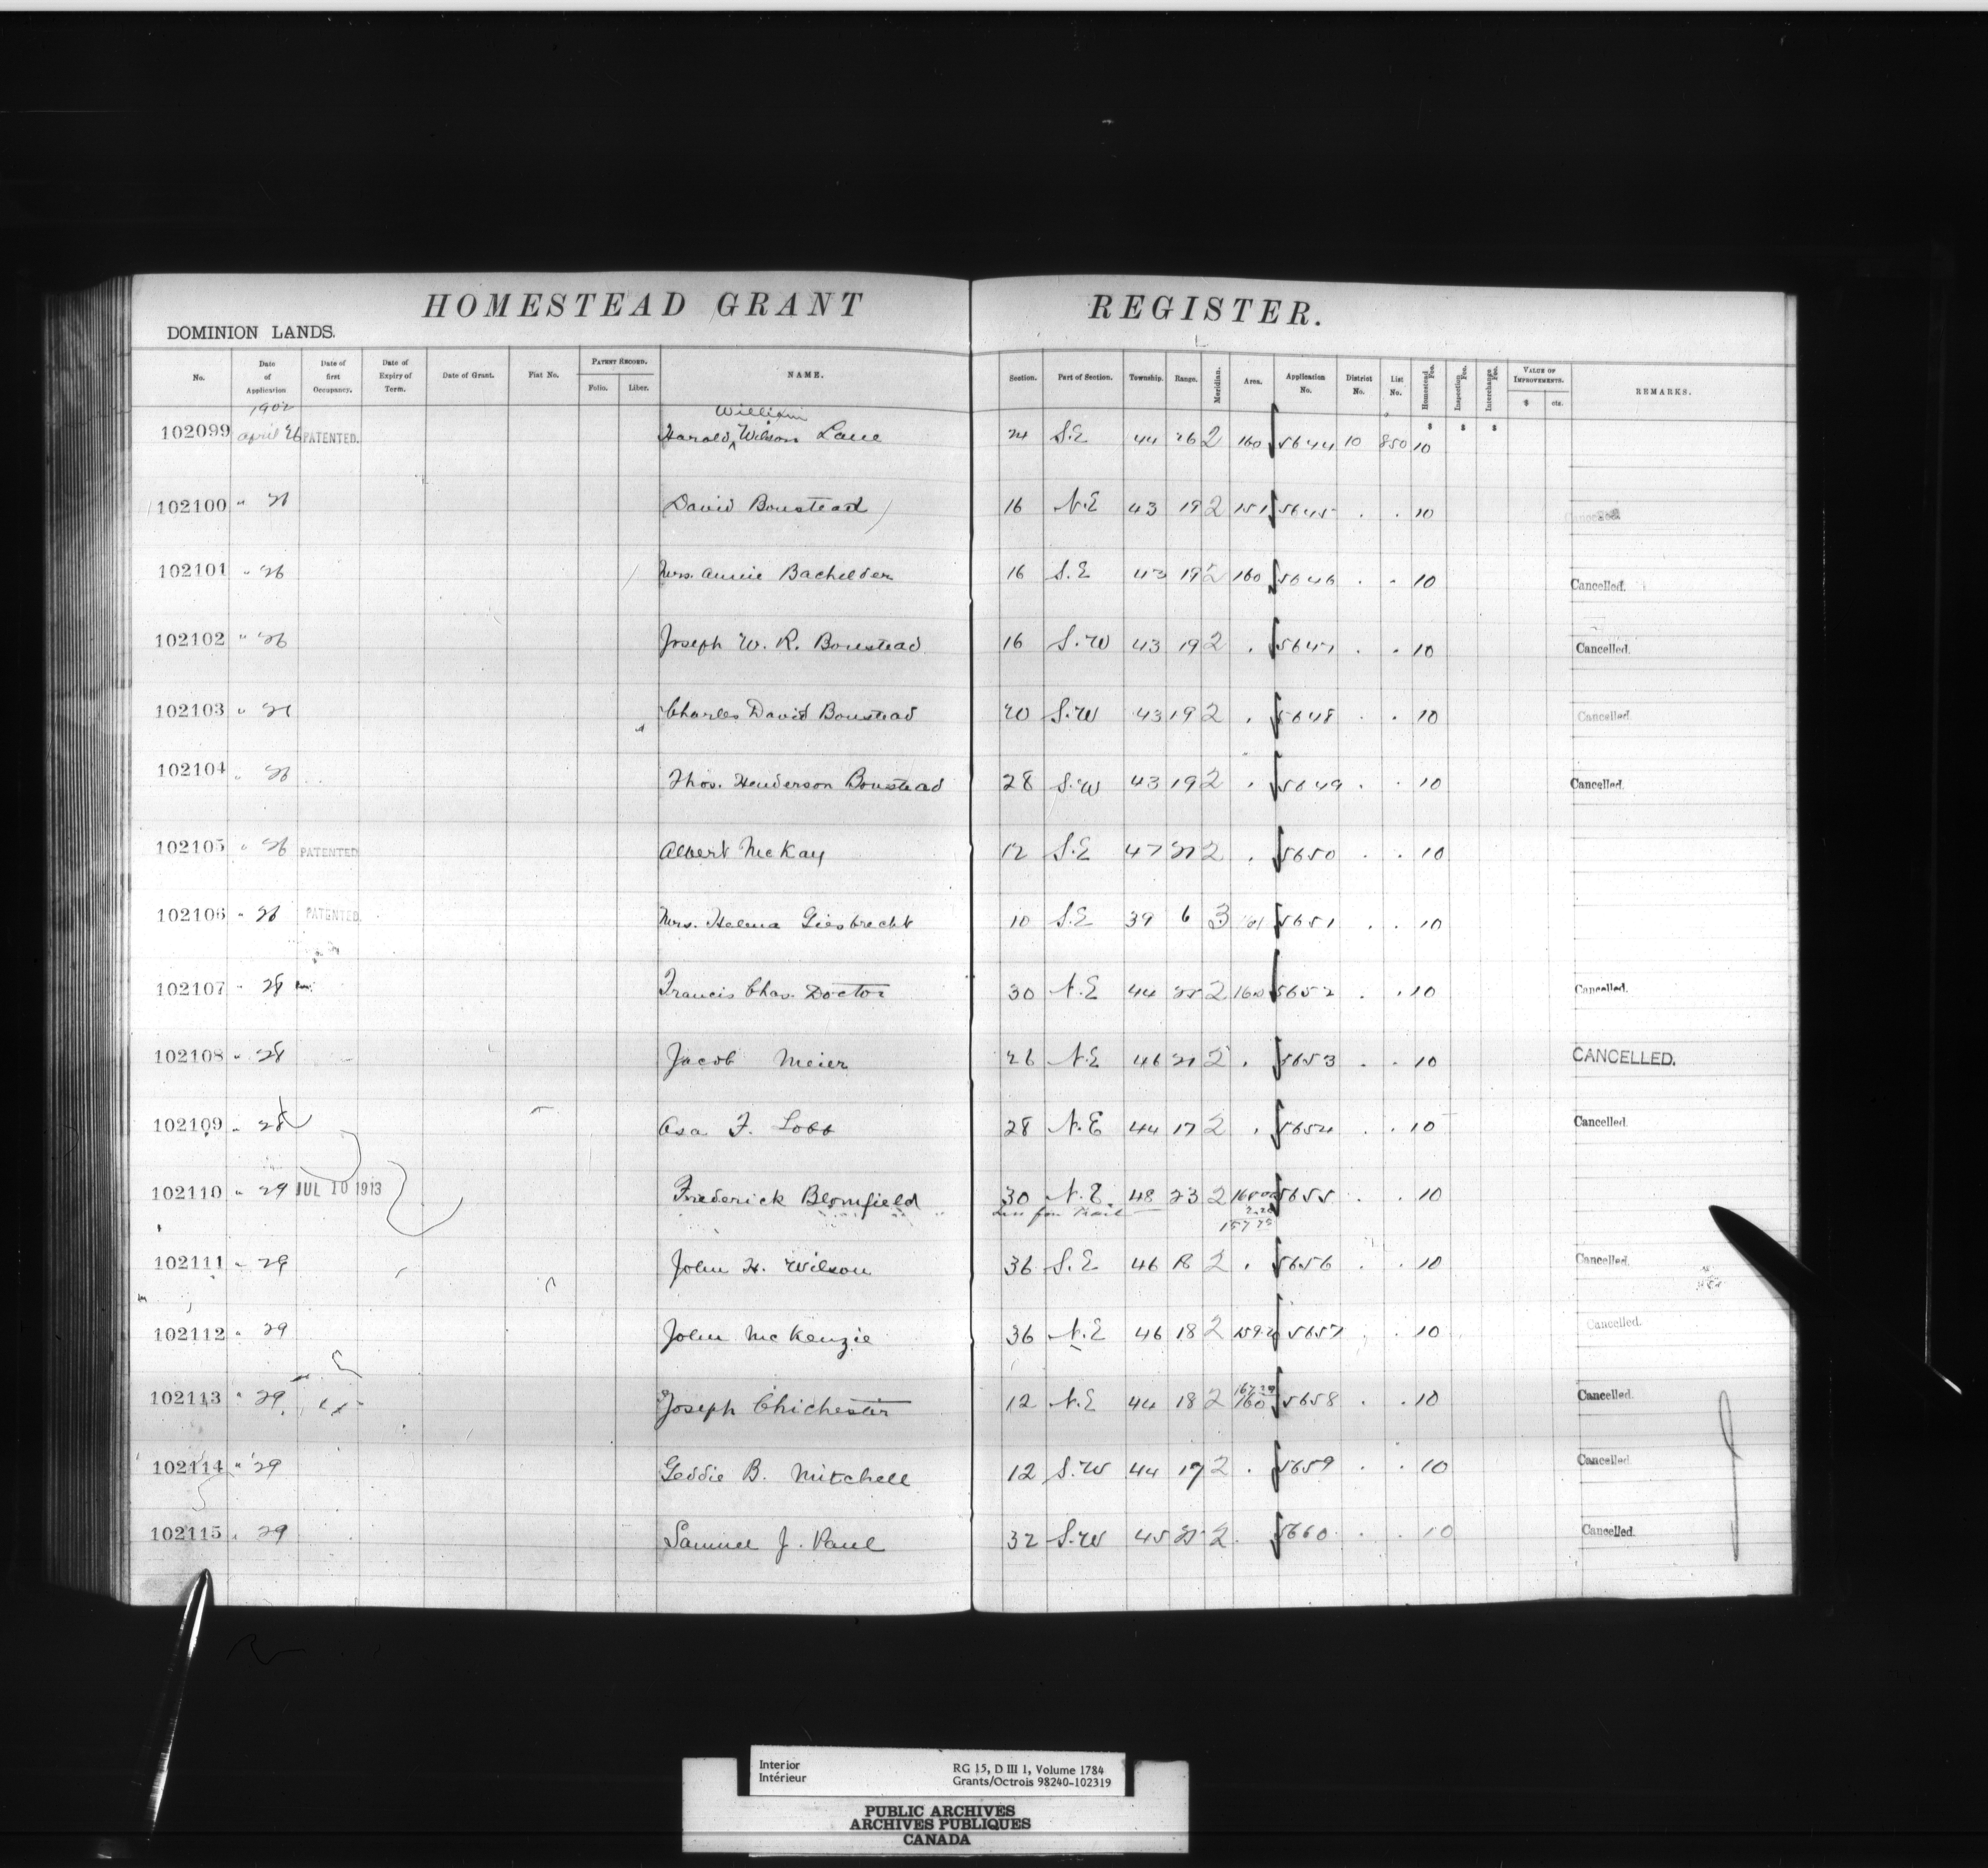 HOMESTEAD GRANT REGISTER.
DOMINION LANDS.
No. Date of Application Date of first Occupancy. Date of Expiry of Term. Date of Grant. Fiat No. PATENT RECORD. Folio. Liber. NAME. Section. Part of Section. Township. Range. Meridian. Area. Application No. District No. List No. Homestead Fee. Inspection Fee. Interchange Fee. VALUE OF IMPROVEMENTS. $ cts. REMARKS.
1902
William
102099 April 26 PATENTED. Harold Wilson Lane 24 S.E 44 26 2 160 5644 10 850 10
102100 " 26 David Boustead 16 N.E 43 19 2 151 5645 . . 10 Cancelled
102101 " 26 Mrs. Annie Bachelder 16 S.E 43 19 2 160 5646 . . 10 Cancelled.
102102 " 26 Joseph W. R. Boustead 16 S.W 43 19 2 . 5647 . . 10 Cancelled.
102103 " 26 Charles David Boustead 20 S.W 43 19 2 . 5648 . . 10 Cancelled.
102104 " 26 Thos. Henderson Boustead 28 S.W 43 19 2 . 5649 . . 10 Cancelled.
102105 " 26 PATENTED Albert McKay 12 S.E 47 27 2 . 5650 . . 10
102106 " 26 PATENTED. Mrs. Helena Giesbrecht 10 S.E 39 6 3 161 5651 . . 10
102107 " 28 Francis Chas. Doctor 30 N.E 44 25 2 160 5652 . . 10 Cancelled.
102108 " 28 Jacob Meier 26 N.E 46 21 2 . 5653 . . 10 CANCELLED.
102109 " 28 Asa F. Lobb 28 N.E 44 17 2 . 5654 . . 10 Cancelled.
102110 " 29 JUL 10 1913 Frederick Blomfield 30 N.E. 48 23 2 5655 . . 10
Less for Trail
102111 " 29 John H. Wilson 36 S.E 46 18 2 . 5656 . . 10 Cancelled.
102112 " 29 John McKenzie 36 N.E 46 18 2 159.2 5657 . . 10 Cancelled.
102113 " 29 Joseph Chichester 12 N.E 44 18 2 160 5658 . . 10 Cancelled.
102114 " 29 Geddie B. Mitchell 12 S.W 44 17 2 . 5659 . . 10 Cancelled.
102115 " 29 Samuel J. Paul 32 S.W 45 2 . 5660 . . 10 Cancelled.
Interior RG 15, D III 1, Volume 1784
Intérieur Grants/Octrois 98240-102319
PUBLIC ARCHIVES
ARCHIVES PUBLIQUES
CANADA